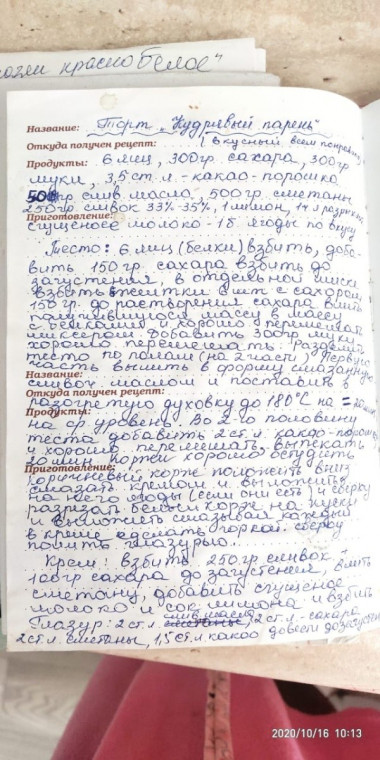 красно белое"
Название: Торт „Кудрявый парень"
Откуда получен рецепт: (вкусный всем
Продукты: 6 яиц, 300гр. сахара, 300гр
муки, 3,5 ст.л. - какао-порошка
50гр слив масла, 500гр. сметаны
250гр сливок 33%-35%, 1 лимон,
Приготовление:
сгущеное молоко - 1б. ягоды по вкусу
Тесто: 6 яиц (белки) взбить, доба-
вить 150гр. сахара взбить до
загустения, в отдельной миске
взбить желтки 6 шт с сахаром
150гр. до растворения сахара. влить
получившуюся массу в массу
с белками и хорошо перемешать
миксером добавить 300гр муки
хорошо перемешать. Разделить
тесто по полам (на 2 части) Первую
Название:
часть вылить в форму смазанную
сливоч. маслом и поставить в
Откуда получен рецепт:
разогретую духовку до 180°С на
Продукты:
на ср. уровень. Во 2-ю половину
теста добавить 2 ст.л. какао-порошка
и хорошо перемешать, выпекать
20 мин. Коржи хорошо остудить
Приготовление:
Коричневый корж положить вниз
смазать кремом и выложить
на него ягоды (если они есть) и сверху
разрезать белый корж на куски
и выложить смазывая каждый
в креме сделать горкой. сверху
полить глазурью.
Крем: взбить 250гр сливок
100гр сахара до загустения, влить
сметану, добавить сгущеное
молоко и сок лимона и взбить
слив масла
Глазур: 2 ст.л. сметаны, 2 ст.л. - сахара
2 ст.л. сметаны, 1,5 ст.л какао довести до
2020/10/16 10:13